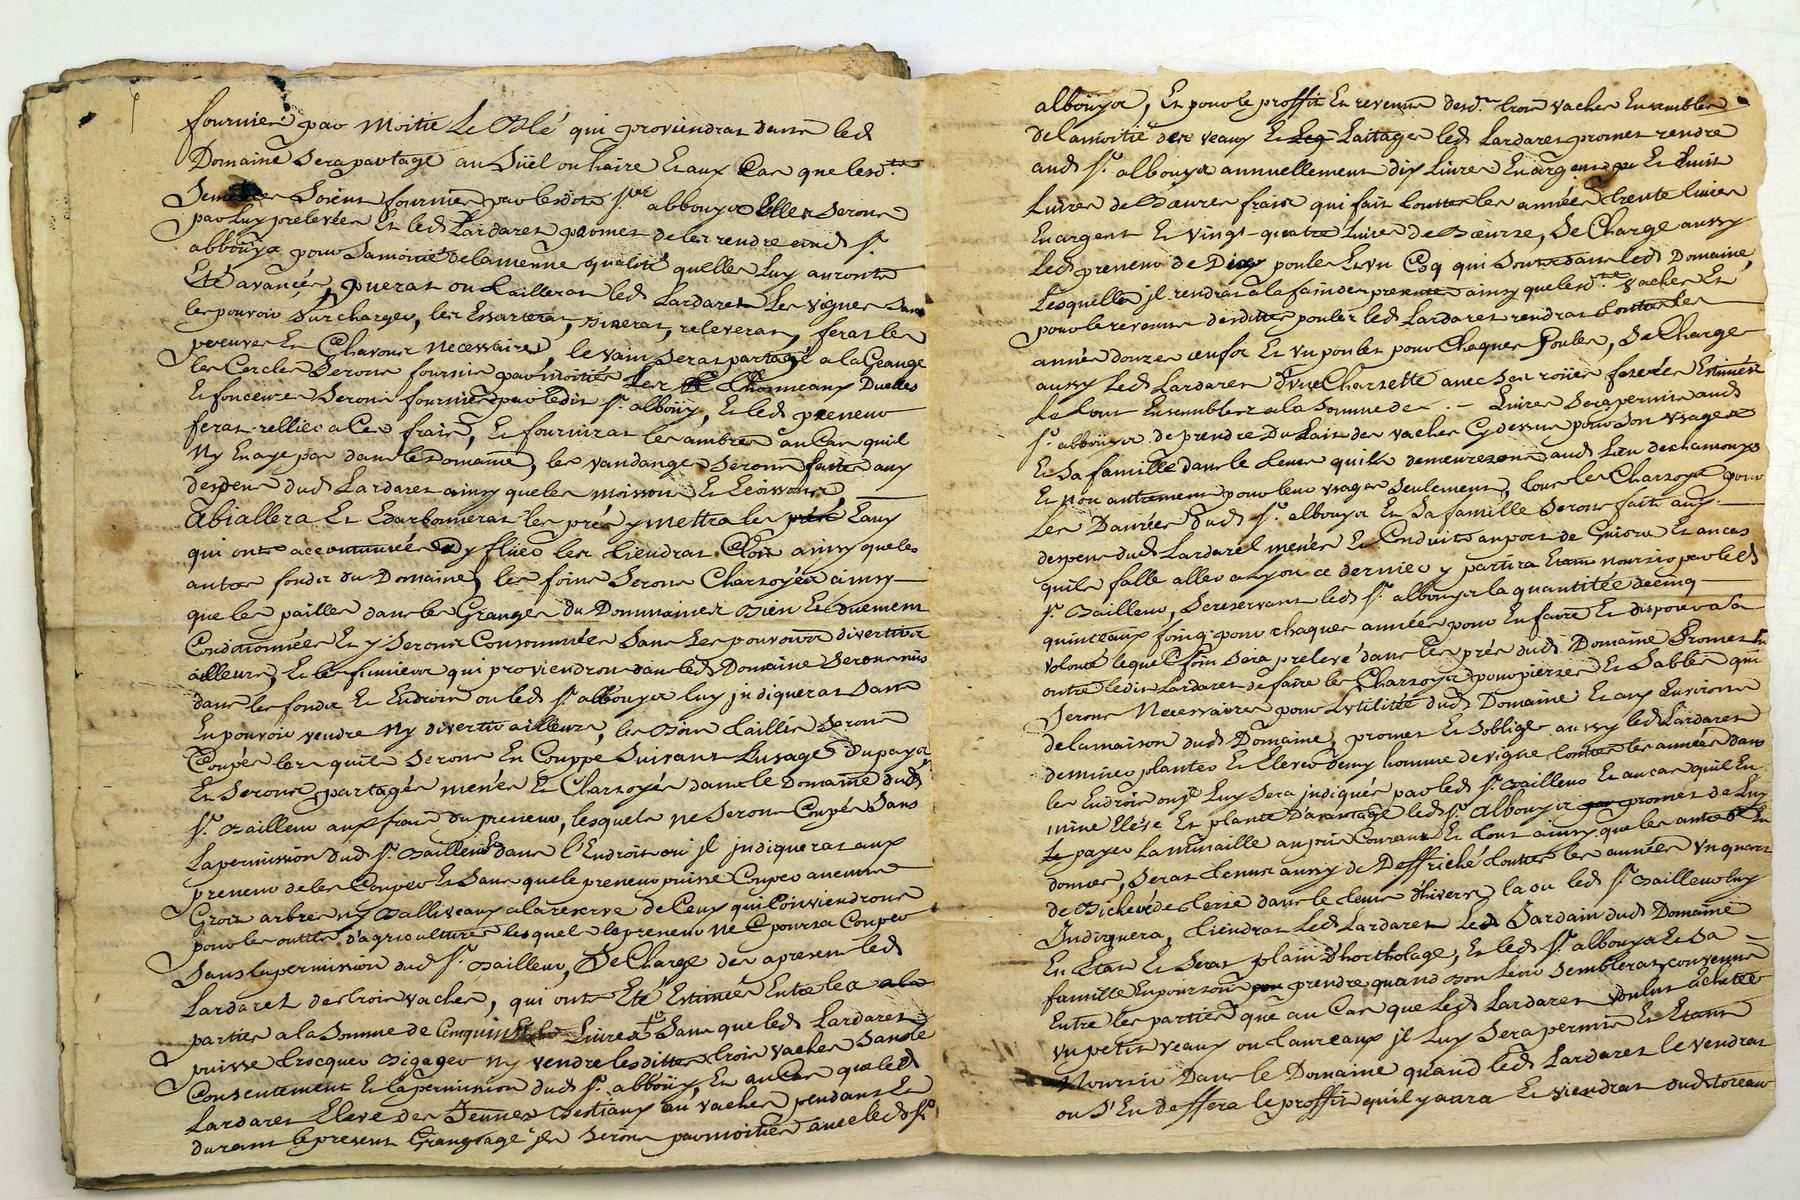 fournier par Moitié Le Blé qui proviendrat dans led
Domaine Sera partagé au Siël ou haire Et aux Cas que lesd.tes
Soient fournies par lesdits s.rs abbouya Elles Seronts
par Luy prelevées Et led Lardaret promet de les rendre aud s.r
abboüya pour Sa moitié de la menne qualité quelles Luy auronts
Eté avancées, puerat ou taillerat led Lardaret Les vignes Sans
les pouvoir Surcharger, les Essarterat, binerat, releverat, ferat les
preuves Et Chavons necessaires, le vain Serat partagé a la Grange
les Cercles Seronts fournis par moitiés Les Channeaux Duelles
Et fonceures Seronts fournies par ledit s.r alboüy, Et led preneur
ferat rellier a Ces frais, Et fournirat les ambres au Cas quil
Ny En aye pas dans le Domaine, les vandanges Seronts faites aux
despens dud Lardaret ainsy que les moissons Et
abiallera Et Edarbonnerat les prés y mettra les Eaux
qui onts accoutumées dy flüer les tiendrat Clos ainsy que les
autres fonds du Domaine, les foins Seronts Charroyés ainsy
que les pailles dans les Granges du Dommaines Bien Et duement
Conditionnées Et y Seronts Consommées Sans Les pouvoirs divertir
ailleurs, Et les fumiers qui proviendront dans led Domaine Seronts mis
dans les fonds Et Endroits ou led s.r abbouya luy indiquerat Sans
En pouvoir vendre Ny divertir ailleurs, les Bois taillis Seronts
Coupés lors quils Seronts En Couppe Suivant Lusage du pays,
Et Seronts partagés menés Et Charroyés dans le Domaine dud
s.r Bailleur aux frais du preneur, lesquels ne Seronts Coupés Sans
La permission dud s.r Bailleur dans l'Endroit ou jl indiquerat aux
preneur de les Couper Et Sans que le preneur puisse Couper aucuns
Gros arbres ny Balliveaux a la reserve de Ceux qui Conviendronts
pour les outils d'agriculture lesquels le preneur ne pourra Couper
Sans la permission dud s.r Bailleur, Se Charge des apresent led
Lardaret de trois vaches, qui onts Eté Estimées Entre les
parties a la Somme de Livres Sans que led Lardaret
puisse trocquer Digager Ny vendre lesdittes trois vaches Sans le
Consentement Et la permission dud s.r abboüy, Et au Cas que led
Lardaret Eleve des Jeunes Bestiaux ou vaches pendant Et
durant le present Grangeage jls Seronts par moitiés avec led s.r
albouya, Et pour le proffit Et revenus desd.tes trois vaches Ensembles
de la moitié des veaux Et Laitages led Lardaret promet rendre
aud s.r albouya annuellement dix Livres En argent Et huit
Livres de Beurre frais qui fait touttes les années trente livres
En argent Et vingt-quatre Livres de Beurre, Se Charge aussy
Led preneur de Dix poules Et vn Coq qui Sonts dans led Domaine,
Lesquelles jl rendrat a la fain des presente ainsy que lesd.tes vaches Et
pour le revenus desdittes poules led Lardaret rendrat touttes Les
années douzes oeufs Et vn poulet pour Chaques Poules, Se Charge
aussy Led Lardaret d'une Charrette avec Ses roües ferées Estimées
Le tout Ensembles a la Somme de . - Livres Sera permis aud
s.r abboüya de prendre Du Lait des vaches Cy dessus pour Son vsage
Et Sa famille dans le tems quils demeureronts aud Lieu de chamouze
Et non autrement pour leur vsages Seulement, tous les Charroys pour
Les Danrées dud s.r albouya Et Sa famille Seronts faits aux
despens dud Lardaret menés Et Conduits au port de Et au cas
quils falle aller a Lyon ce dernier y partira Etant nourris par led
s.r Bailleur, Se reservant led s.r albouya la quantitée de cinq
quinteaux foing pour chaques années pour En faire Et disposer a Sa
volonté lequel foin Sera prelevé dans les prés dud Domaine Promet En
outre ledit Lardaret de faire les Charroys pour pierres Et Sables qui
Seronts Necessaires pour Lvtilitée dud Domaine Et aux Environs
de la maison dud Domaine, promet Et Soblige aussy led Lardaret
de miner planter Et Elever demy homme de vigne touttes les années dans
les Endroits ou jl Luy Sera indiqués par led s.r Bailleur Et au cas quil En
mine Eléve Et plante D'avantage led s.r Albouya promet de Luy
payer La minaille au prix Courant Et tout ainsy que les autres En
donnes, Serat tenus aussy de Deffriché touttes les années Vn quart
de Bicherée de terre dans le tems dhivers la ou led s.r Bailleur luy
Indiquera, tiendrat Led Lardaret Led Jardain dud Domaine
En Etat Et Serat plain d'hortholage, Et led s.r albouya Et Sa
famille En pourronts prendre quand Bon leur Semblerat, convenus
Entre les parties que au Cas que Led Lardaret voulut acheter
vn petit veaux ou taureaux jl Luy Sera permis Et Etant
Nourris Dans le Domaine quand led Lardaret le vendrat
ou S'En deffera le proffit quil y aura Et viendrat dud toreau